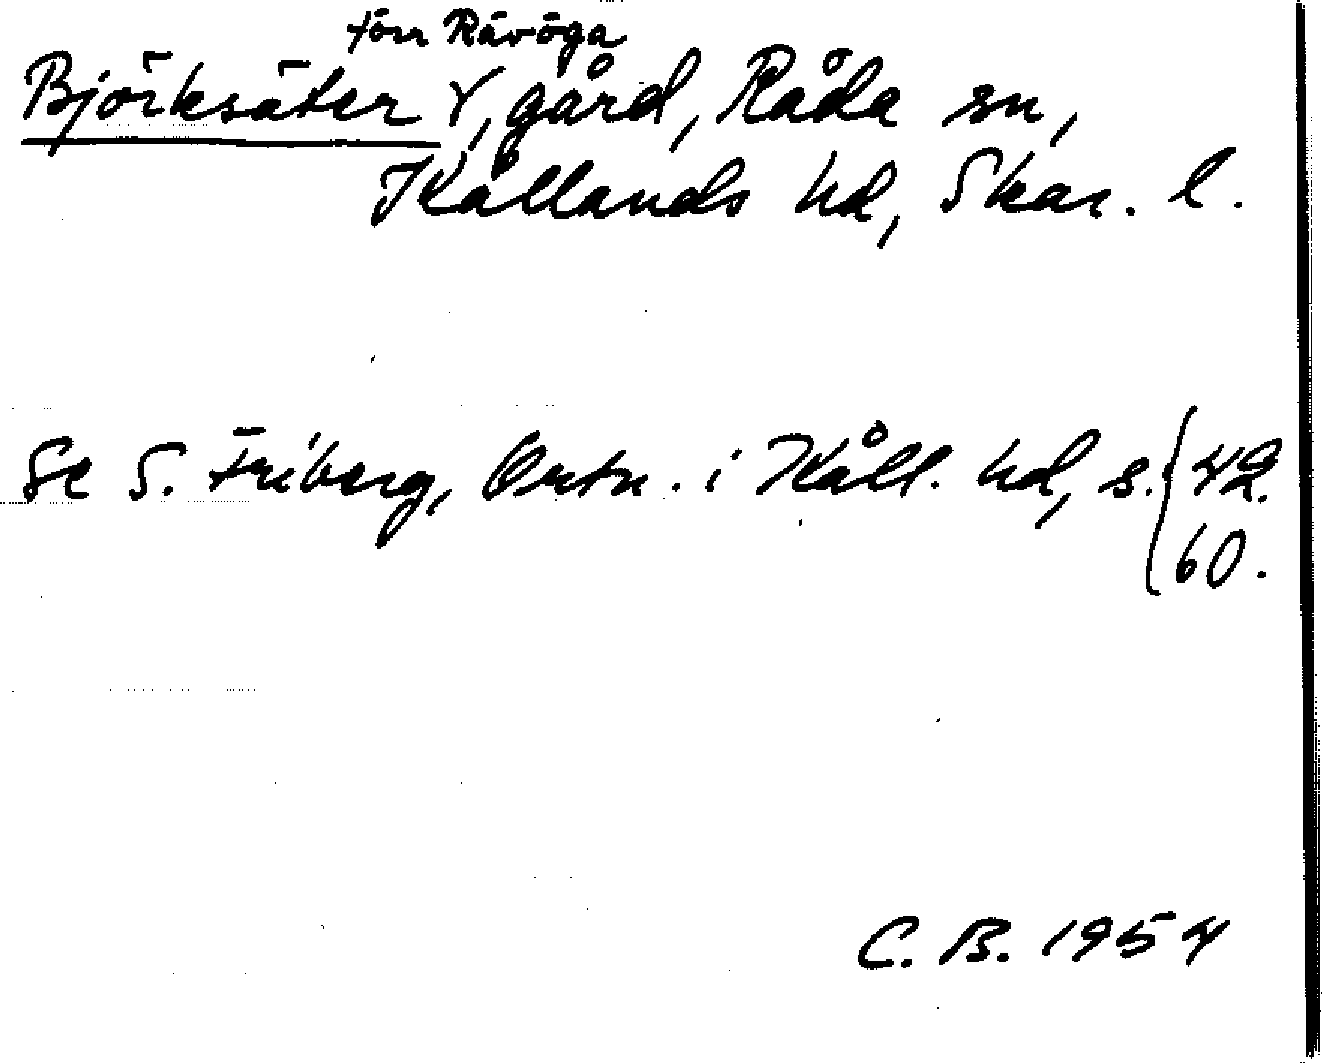 förr Rävöga
Björksäter, gård, Råda sn,
Kållands hd, Skar. l.
Se S. Friberg, Ortn. i Kåll. hd, s. 42.
60.
C. B. 1954